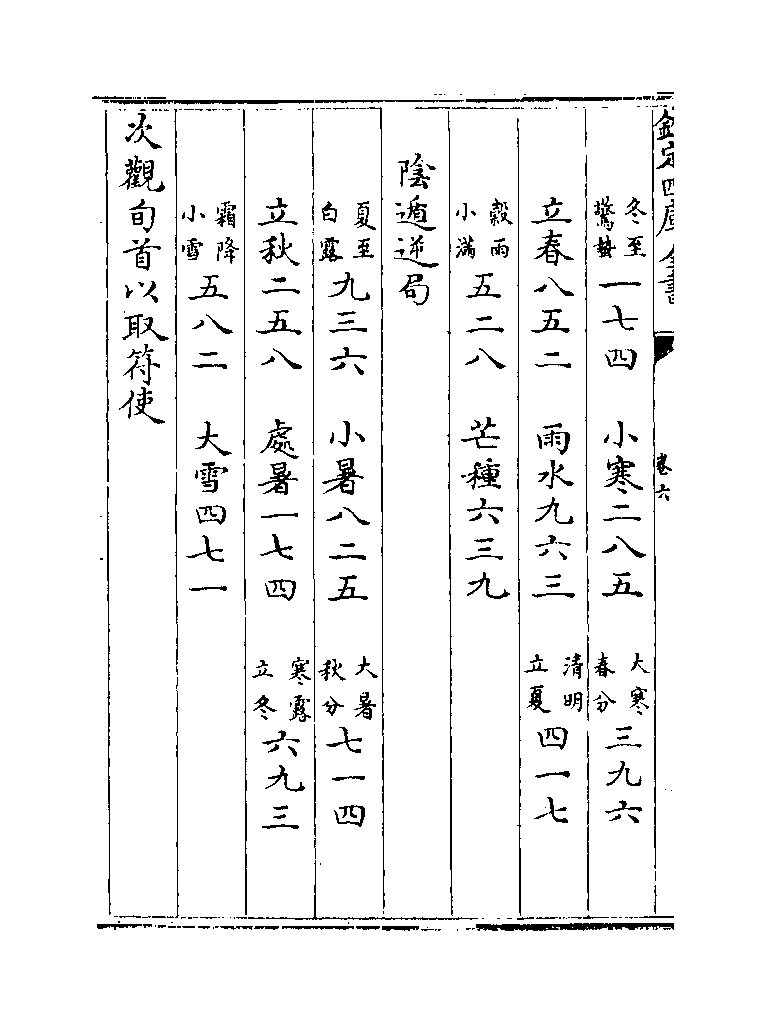 欽定四庫全書
卷六
冬至驚蟄一七四　小寒二八五　大寒春分三九六
立春八五二　雨水九六三　清明立夏四一七
穀雨小滿五二八　芒種六三九
陰遁逆局
夏至白露九三六　小暑八二五　大暑秋分七一四
立秋二五八　處暑一七四　寒露立冬六九三
霜降小雪五八二　大雪四七一
次觀旬首以取符使